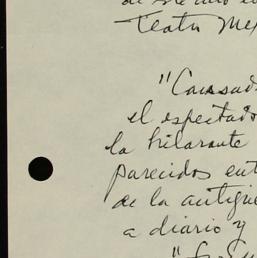 Teatro Me
"Causad
el espectado
la hilarante
parecidos ent
de la antigüe
a diario y